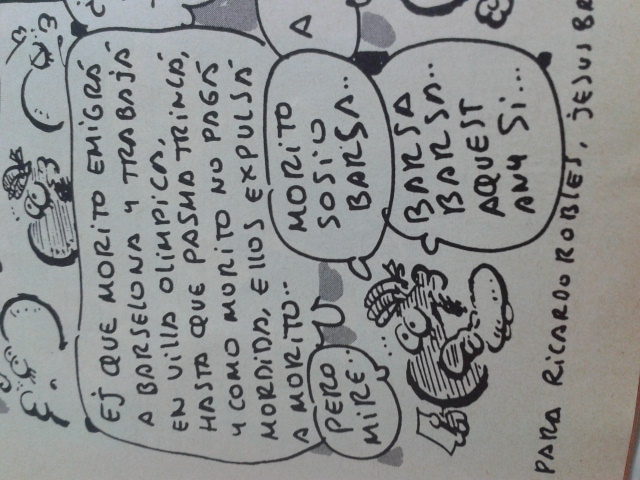 EJ QUE MORITO EMIGRÁ
A BARSELONA Y TRABAJÁ
EN VILLA OLIMPICA,
HASTA QUE PASMA TRINCÁ,
Y COMO MORITO NO PAGÁ
MORDIDA, ELLOS EXPULSÁ
A MORITO..
PERO
MIRE..
MORITO
SOSIO
BARSA..
BARSA
BARSA..
AQUEST
ANY SI...
A
PARA RICARDO ROBLES, JESUS BR